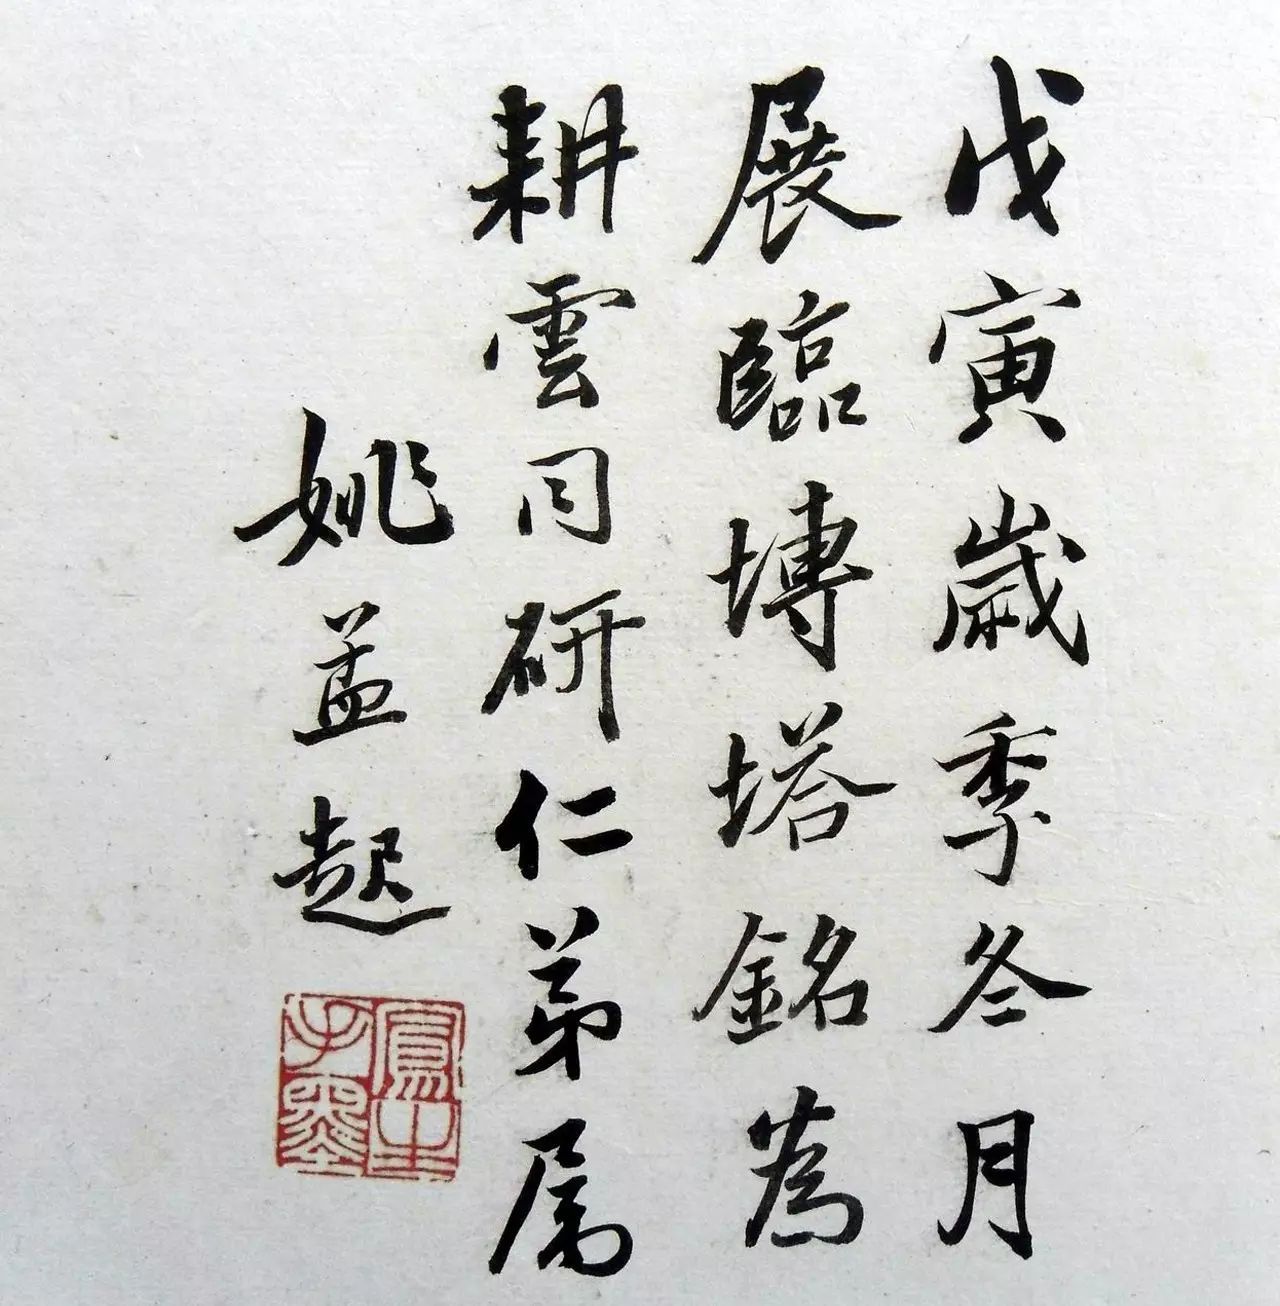 戊寅歲季冬月
展臨塼塔銘為
耕雲同研仁弟属
姚孟起
鳳生
手墨